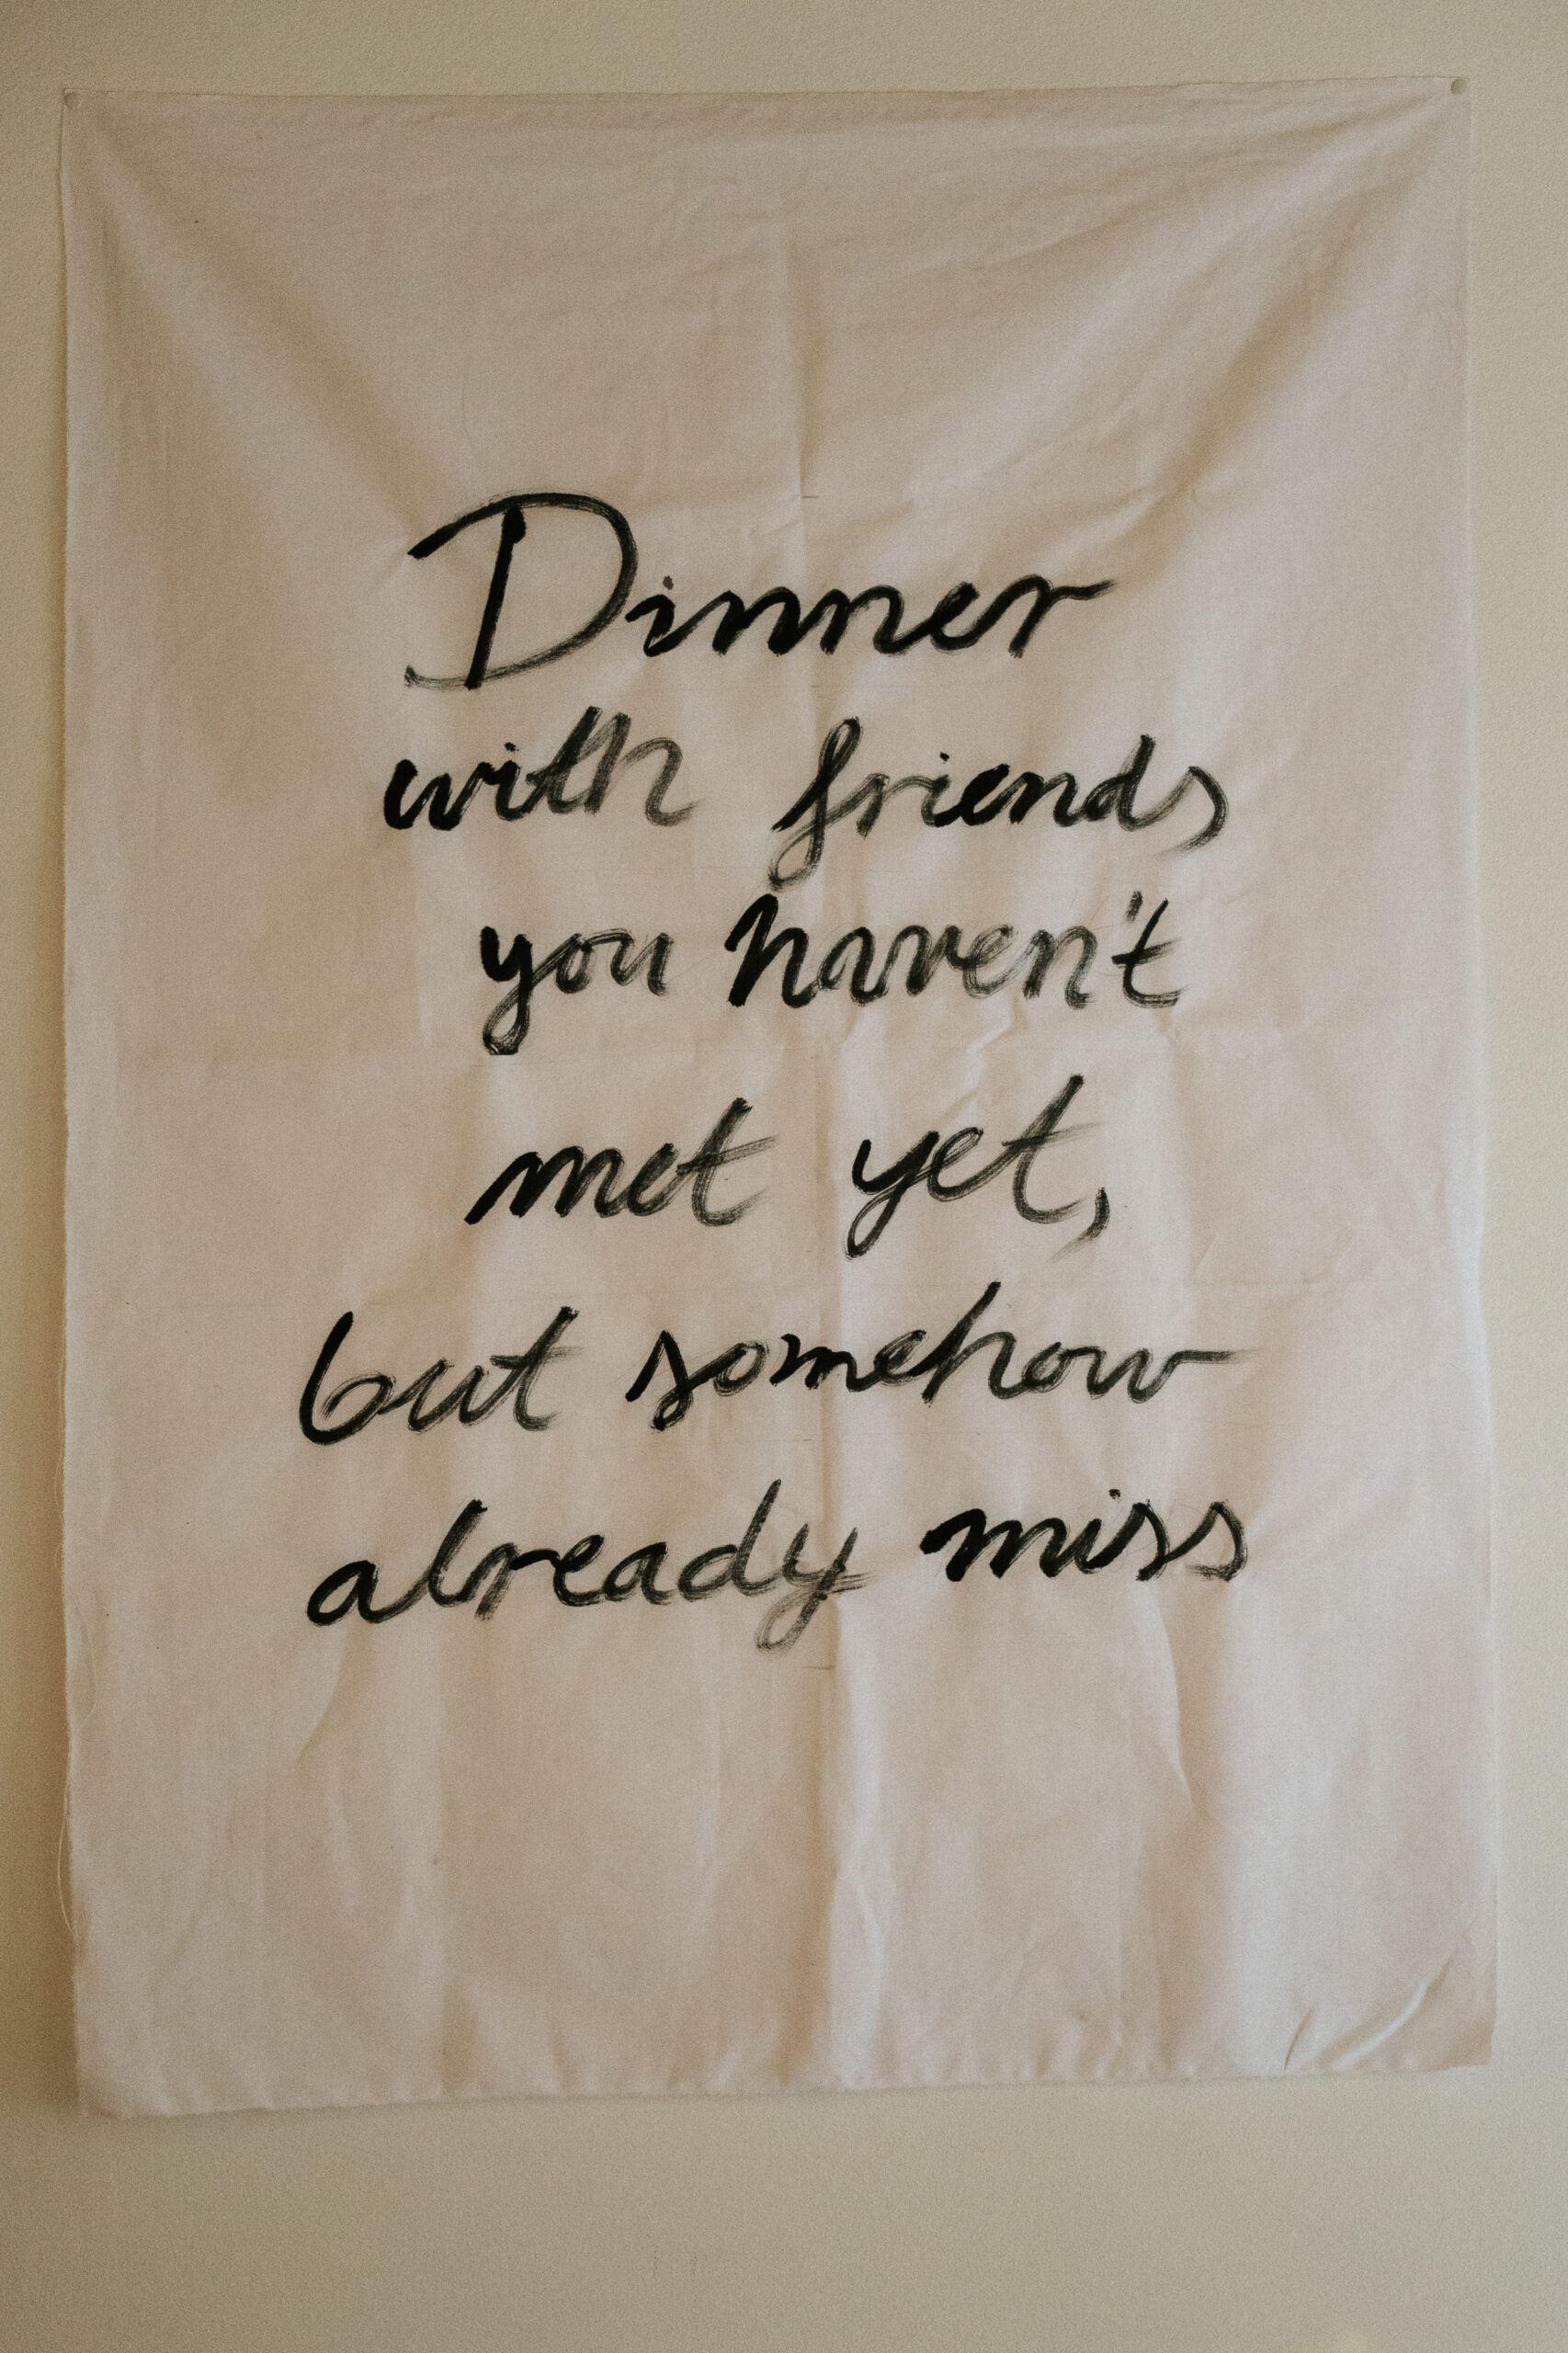 Dinner
with friends
you haven't
met yet,
but somehow
already miss